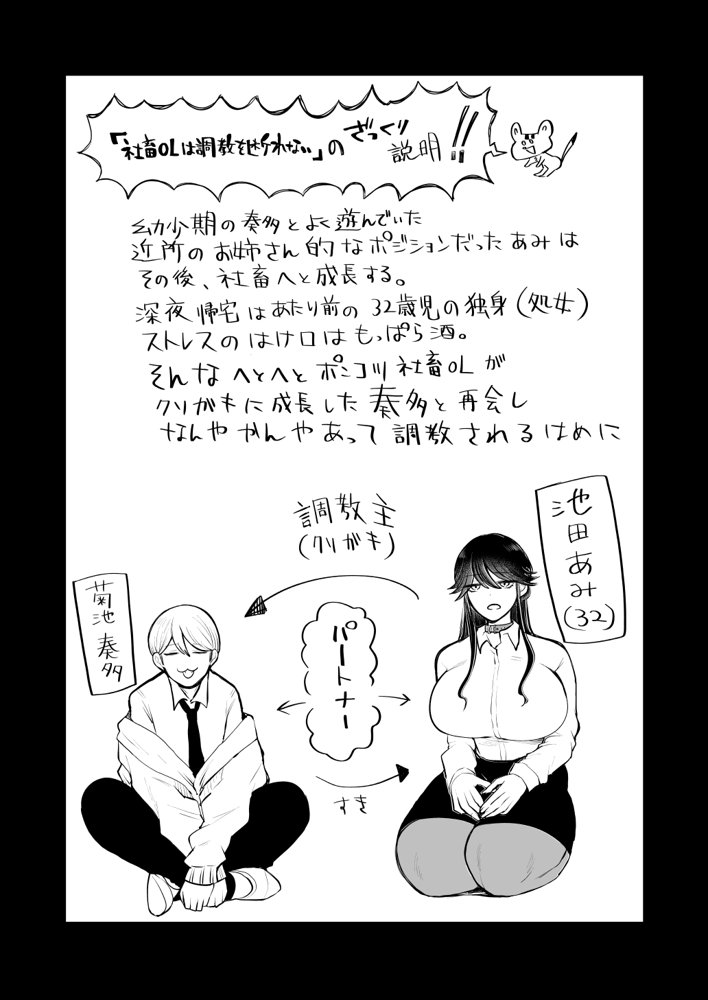 「社畜OLは調教を断れない」の ざっくり説明!!
幼少期の奏多とよく遊んでいた
近所のお姉さん的なポジションだったあみは
その後、社畜へと成長する。
深夜帰宅はあたり前の32歳児の独身(処女)
ストレスのはけ口はもっぱら酒。
そんなへとへとポンコツ社畜OLが
クソガキに成長した奏多と再会し
なんやかんやあって調教されるはめに
調教主
(クソガキ)
池田あみ
(32)
菊池奏多
パートナー
すき